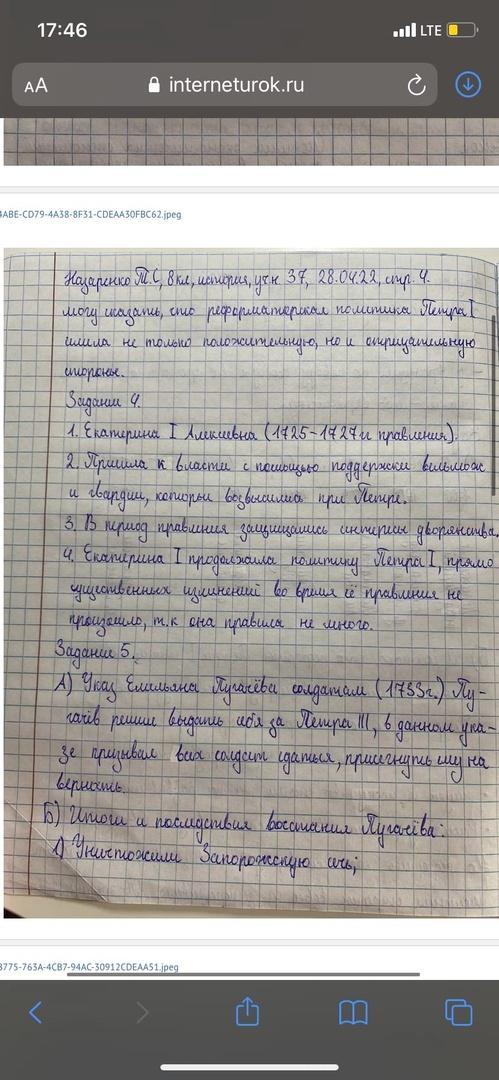 17:46
LTE
AA
interneturok.ru
4ABE-CD79-4A38-8F31-CDEAA30FBC62.jpeg
Назаренко Т.С, 8 кл, история, уч.н 37, 28.04.22, стр. 4.
могу сказать, что реформаторская политика Петра I
имела не только положительную, но и отрицательную
стороны.
Задание 4.
1. Екатерина I Алексеевна (1725-1727гг правления).
2. Пришла к власти с помощью поддержки вельмож
и гвардии, которые возвысились при Петре.
3. В период правления защищались интересы дворянства.
4. Екатерина I продолжала политику Петра I, прямо
существенных изменений во время её правления не
произошло, т.к она правила не много.
Задание 5.
А) Указ Емельяна Пугачёва солдатам (1733г.) Пу-
гачёв решил выдать себя за Петра III, в данном ука-
зе призывал всех солдат сдаться, присягнуть ему на
верность.
Б) Итоги и последствия восстания Пугачёва:
1) Уничтожили Запорожскую сечь;
3775-763A-4CB7-94AC-30912CDEAA51.jpeg